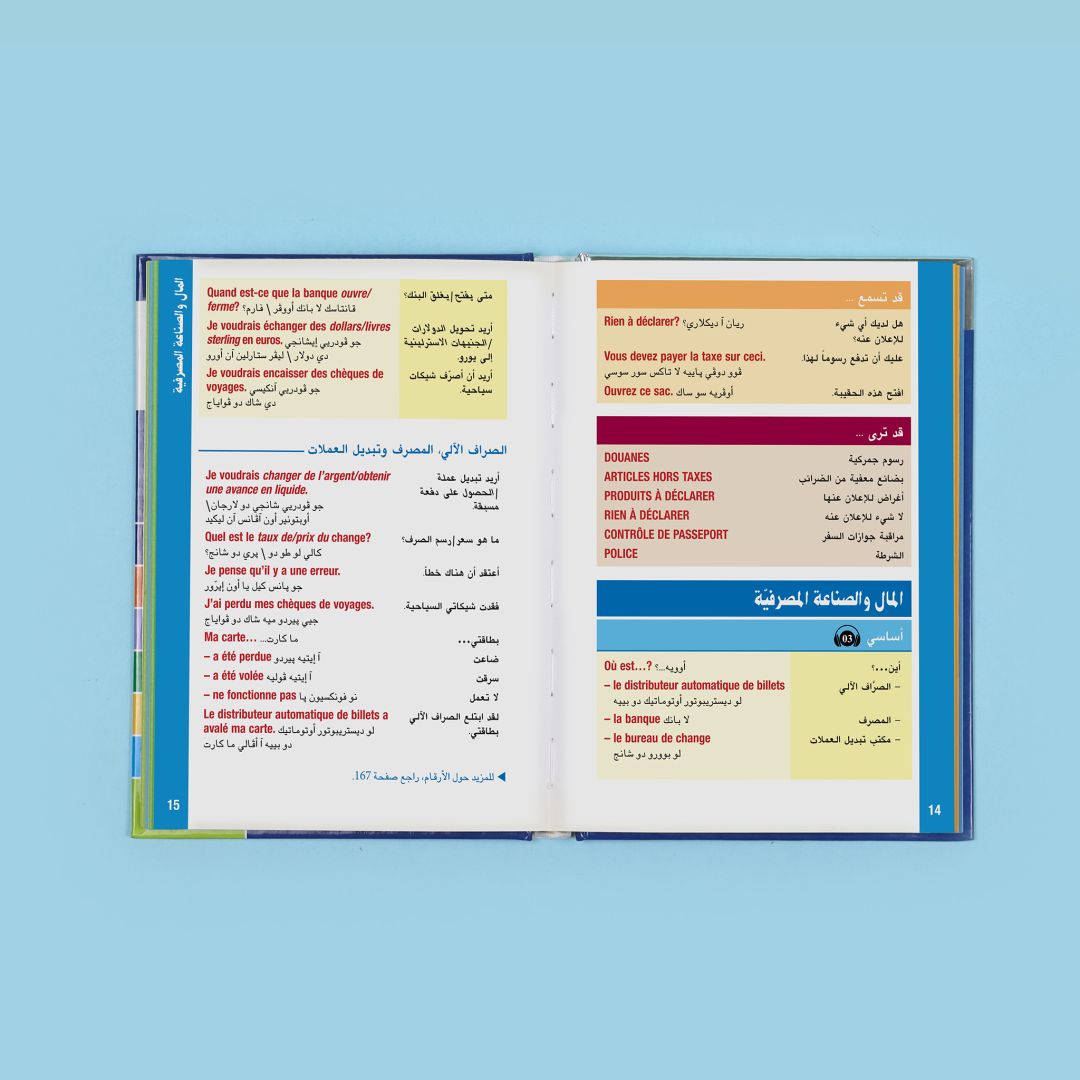 قد تسمع ...
هل لديك أي شيء
للإعلان عنه؟
Rien à déclarer? ريان آ ديكلاري؟
عليك أن تدفع رسوماً لهذا.
Vous devez payer la taxe sur ceci.
ڤوو دوڤي پاييه لا تاكس سور سوسي
افتح هذه الحقيبة.
Ouvrez ce sac. أوڤريه سو ساك
قد ترى ...
رسوم جمركية
DOUANES
بضائع معفية من الضرائب
ARTICLES HORS TAXES
أغراض للإعلان عنها
PRODUITS À DÉCLARER
لا شيء للإعلان عنه
RIEN À DÉCLARER
مراقبة جوازات السفر
CONTRÔLE DE PASSEPORT
الشرطة
POLICE
المال والصناعة المصرفيّة
أساسي 03
أين...؟
Où est…? أوويه...؟
– الصرَّاف الآلي
– le distributeur automatique de billets
لو ديستريبوتور أوتوماتيك دو بييه
– المصرف
– la banque لا بانك
– مكتب تبديل العملات
– le bureau de change
لو بوورو دو شانج
14
المال والصناعة المصرفية
متى يفتح/يغلق البنك؟
Quand est-ce que la banque ouvre/
ferme? قانتاسك لا بانك أووڤر \ فارم؟
أريد تحويل الدولارات
/الجنيهات الاسترلينية
إلى يورو.
Je voudrais échanger des dollars/livres
sterling en euros. جو ڤودريي إيشانجي
دي دولار \ ليڤر ستارلين آن أورو
أريد أن أصرّف شيكات
سياحية.
Je voudrais encaisser des chèques de
voyages. جو ڤودريي آنكيسي
دي شاك دو ڤواياج
الصراف الآلي، المصرف وتبديل العملات
أريد تبديل عملة
/الحصول على دفعة
مسبقة.
Je voudrais changer de l'argent/obtenir
une avance en liquide.
جو ڤودريي شانجي دو لارجان\
أوبتونير أون آڤانس آن ليكيد
ما هو سعر/رسم الصرف؟
Quel est le taux de/prix du change?
كالي لو طو دو \ پري دو شانج؟
أعتقد أن هناك خطأ.
Je pense qu'il y a une erreur.
جو پانس كيل يا أون إيرّور
فقدت شيكاتي السياحية.
J'ai perdu mes chèques de voyages.
جيي پيردو ميه شاك دو ڤواياج
بطاقتي...
Ma carte… ما كارت...
ضاعت
– a été perdue آ إيتيه پيردو
سرقت
– a été volée آ إيتيه ڤوليه
لا تعمل
– ne fonctionne pas نو فونكسيون پا
لقد ابتلع الصراف الآلي
بطاقتي.
Le distributeur automatique de billets a
avalé ma carte. لو ديستريبوتور أوتوماتيك
دو بييه آ آڤالي ما كارت
للمزيد حول الأرقام، راجع صفحة 167.
15